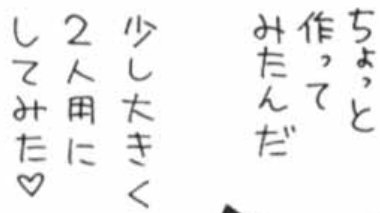 ちょっと
作って
みたんだ
少し大きく
2人用に
してみた♡